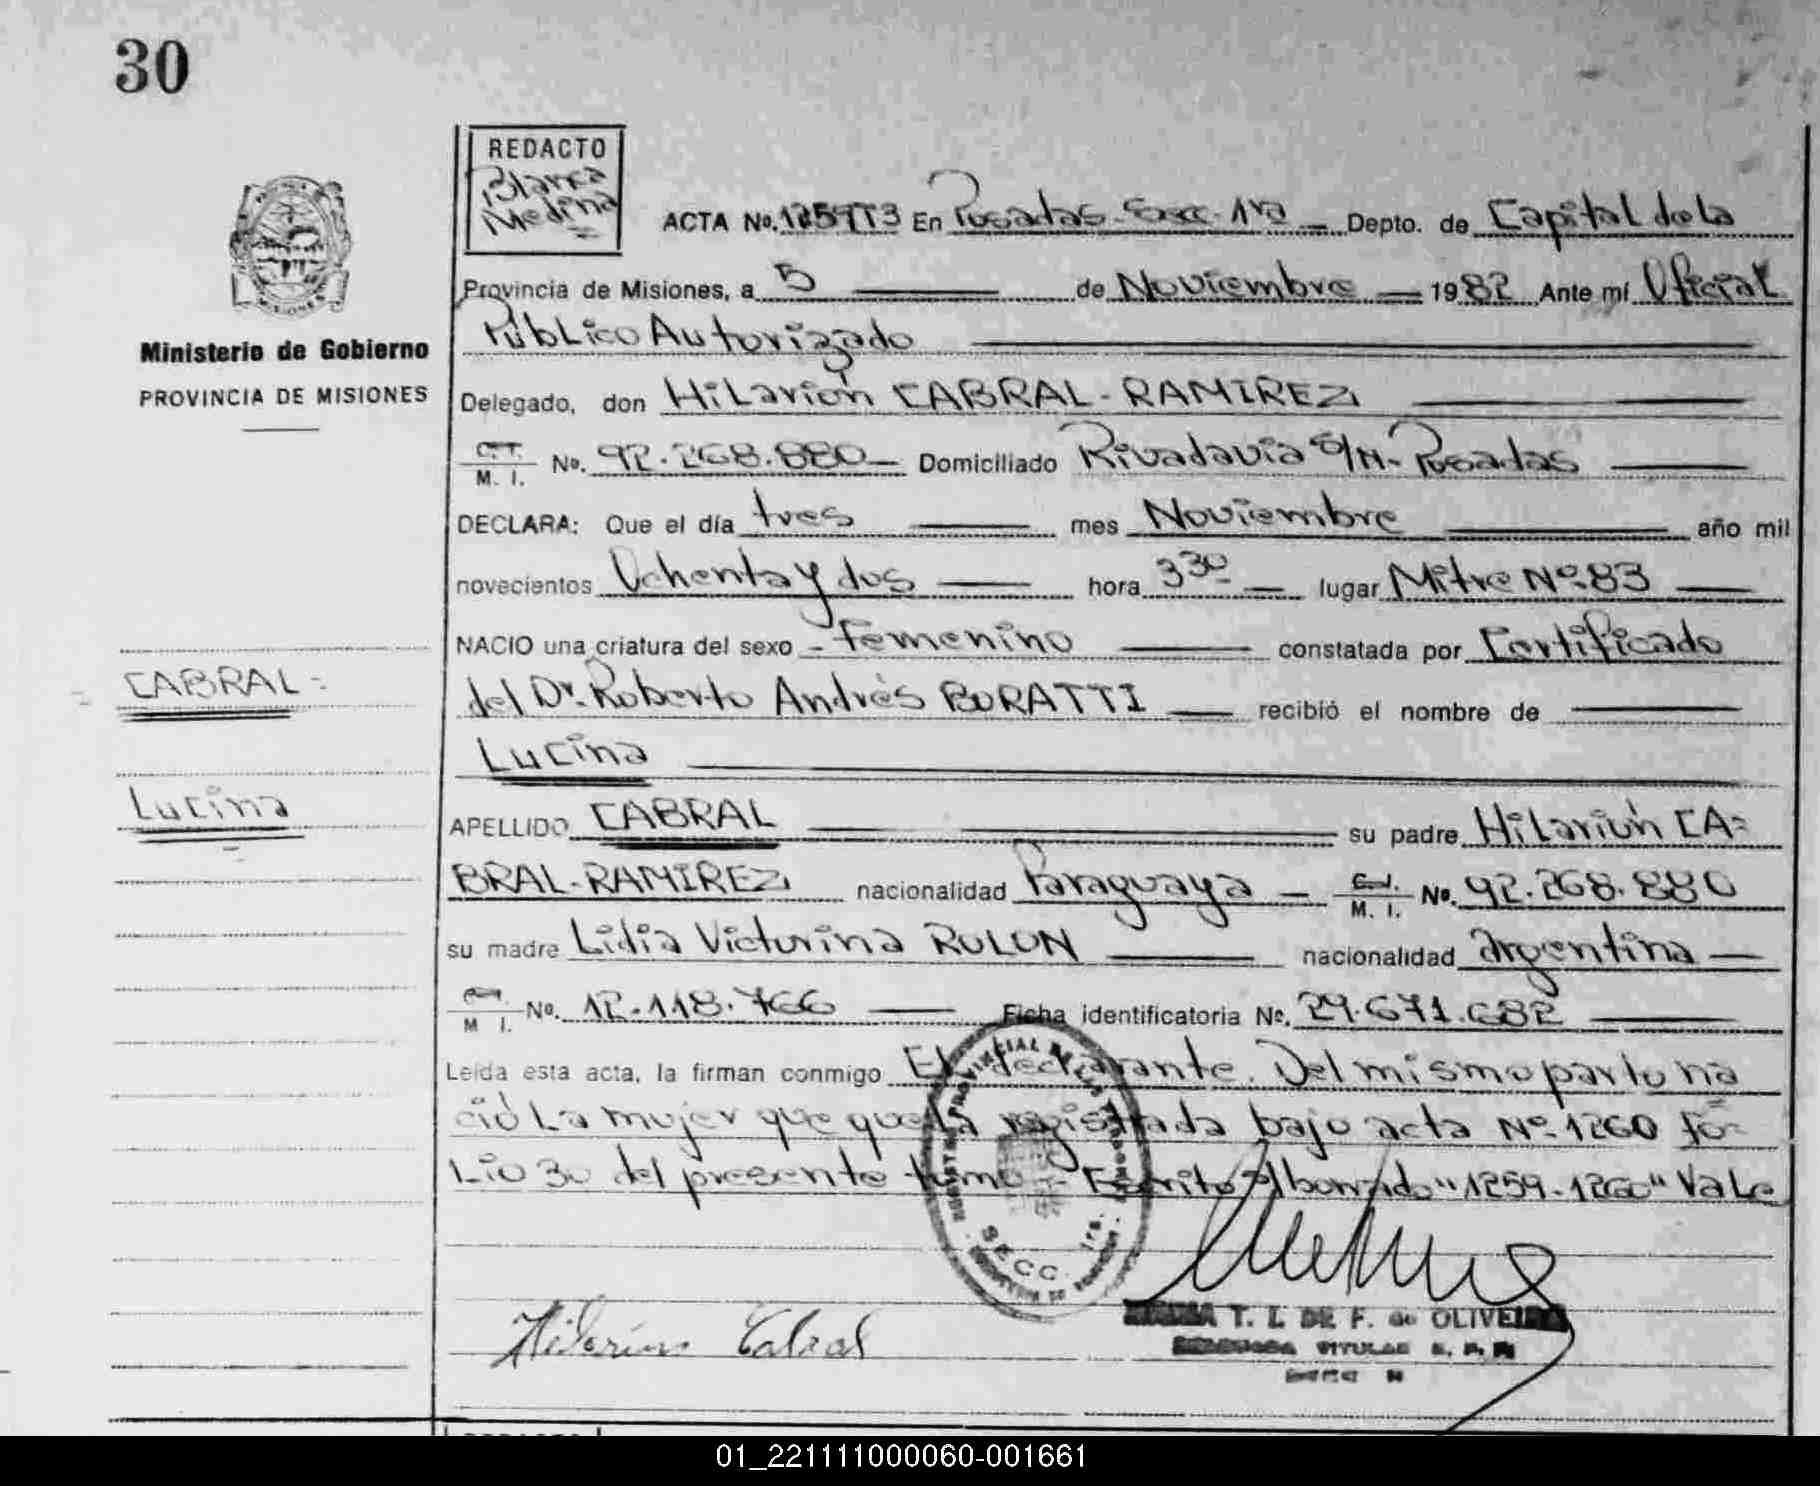 30
REDACTO
Blanca
Medina
ACTA No. 1259 En Posadas-Secc-1ra Depto. de Capital de la
Provincia de Misiones, a 5 de Noviembre 1982 Ante mí Oficial
Público Autorizado
Ministerio de Gobierno
PROVINCIA DE MISIONES
Delegado, don Hilarión CABRAL-RAMIREZ
M. I. No. 92.268.880 Domiciliado Rivadavia S/N-Posadas
DECLARA: Que el día tres mes Noviembre año mil
novecientos Ochenta y dos hora 330 lugar Mitre Nº 83
NACIO una criatura del sexo - Femenino constatada por Certificado
CABRAL=
del Dr. Roberto Andrés BORATTI recibió el nombre de
Lucina
Lucina
APELLIDO CABRAL su padre Hilarión CA=
BRAL-RAMIREZ nacionalidad Paraguaya C.I. M. I. No. 92.268.880
su madre Lidia Victorina ROLON nacionalidad argentina
M I. No. 12.118.766 Ficha identificatoria No. 29.671.682
Leída esta acta, la firman conmigo El declarante. Del mismo parto na
ció La mujer que queda registrada bajo acta Nº 1260 fo=
Lio 30 del presente tomo - Escrito S/borrado "1259-1260" Vale
SECC. 1ra.
Hilarión Cabral
T. L. DE F. de OLIVEIRA
TITULAR
01_221111000060-001661